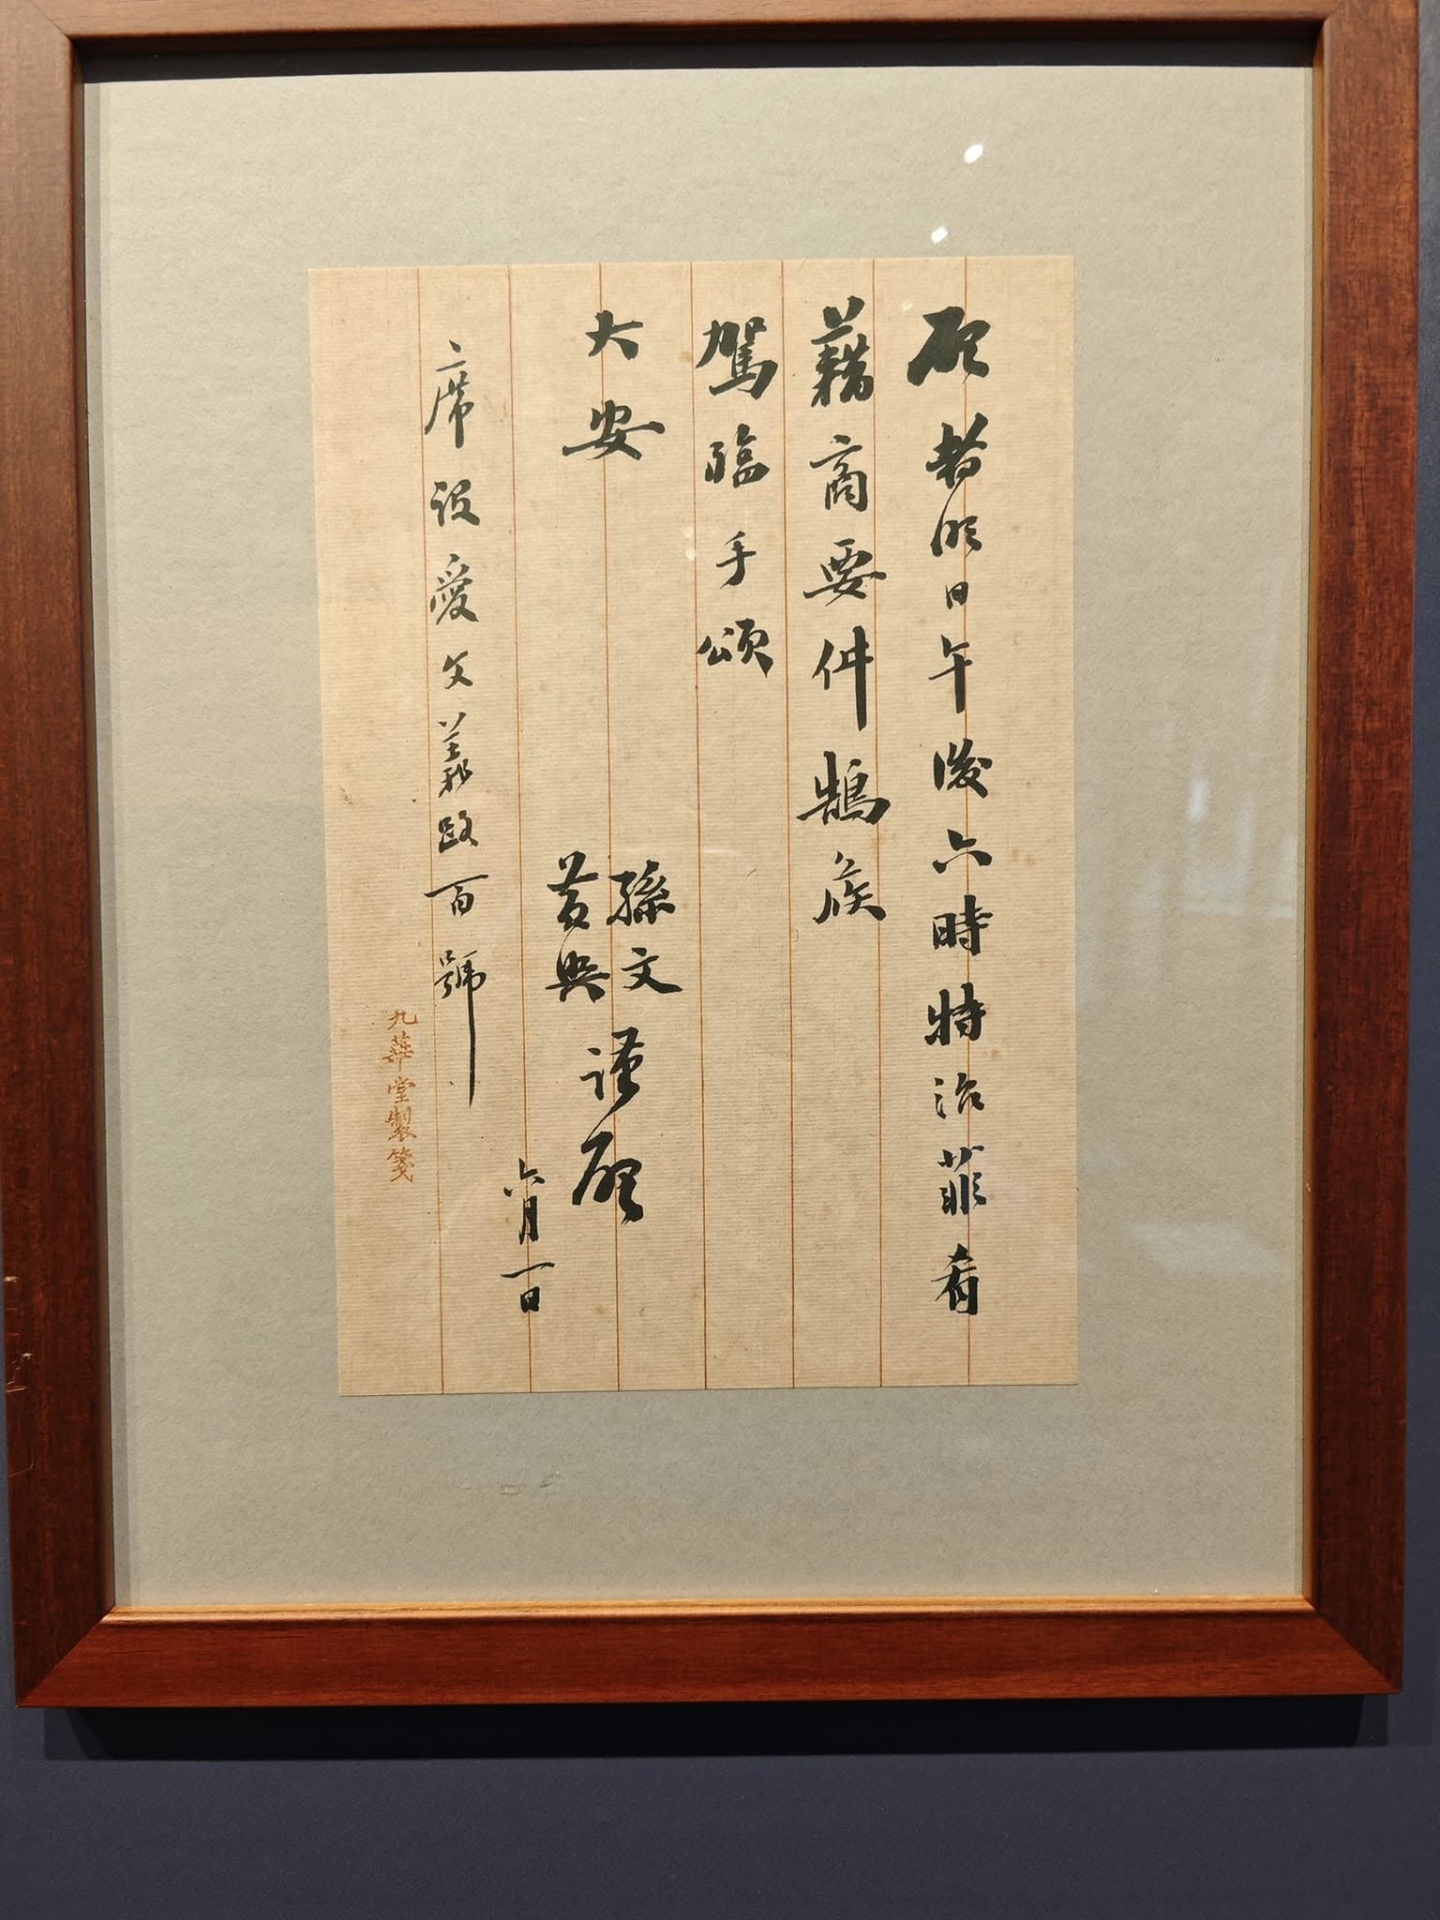 啟者明日午後六時特治菲肴
藉商要件鵠俟
駕臨手頌
大安
孫文
黃興
謹啟
六月一日
席設愛文義路百號
九華堂製箋